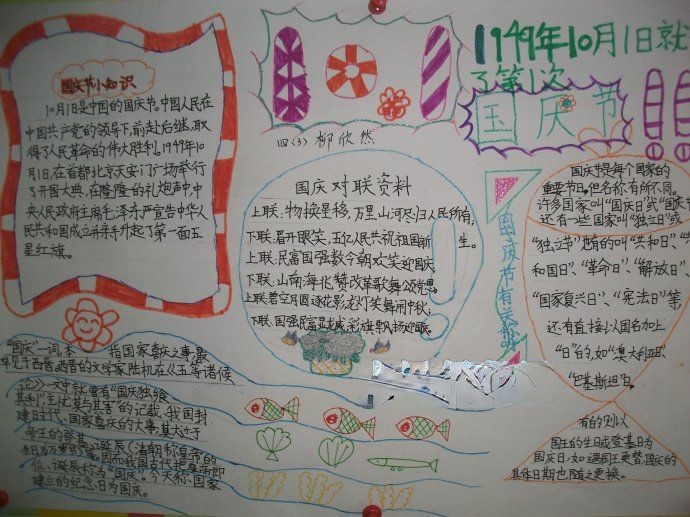 国庆节小知识
10月1日是中国的国庆节,中国人民在
中国共产党的领导下,前赴后继,取
得了人民革命的伟大胜利。1949年10
月1日,在首都北京天安门广场举行
了开国大典,在隆隆的礼炮声中,中
央人民政府主席毛泽东严宣告中华人
民共和国成立并亲手升起了第一面五
星红旗。
四(3) 柳欣然
1949年10月1日就
了第1次
国庆节
国庆对联资料
上联:物换星移,万里山河尽归人民所有,
下联:眉开眼笑,五亿人民共祝祖国新生。
上联:民富国强数今朝欢笑迎国庆,
下联:山南海北赞改革歌舞颂党恩。
上联:碧空月圆逐花影龙灯笑舞闹中秋;
下联:国强民富显龙威,彩旗飘扬迎国庆。
国庆节有关
国庆节是每个国家的
重要节日,但名称有所不同。
许多国家叫“国庆日”或“国庆节”
还有一些国家叫“独立日”或
“独立节”也有的叫“共和日”、“
和国日”、“革命日”、“解放日”、
“国家复兴日”、“宪法日”等
还有直接以国名加上
“日”的,如“澳大利亚日”、
“巴基斯坦日”。
有的则以
国王的生日或登基日为
国庆日,如遇国王更替,国庆的
具体日期也随之更换。
“国庆”一词,本 指国家喜庆之事,最
早见于西晋。西晋的文学家陆机在《五等诸侯
论》一文中就曾有“国庆独飨
其利,主忧莫与其害”的记载、我国封
建时代、国家喜庆的大事,莫大过于
帝王的登基、诞辰(清朝称皇帝的
位、诞辰称为“国庆”。今天称国家
建立的纪念日为国庆。